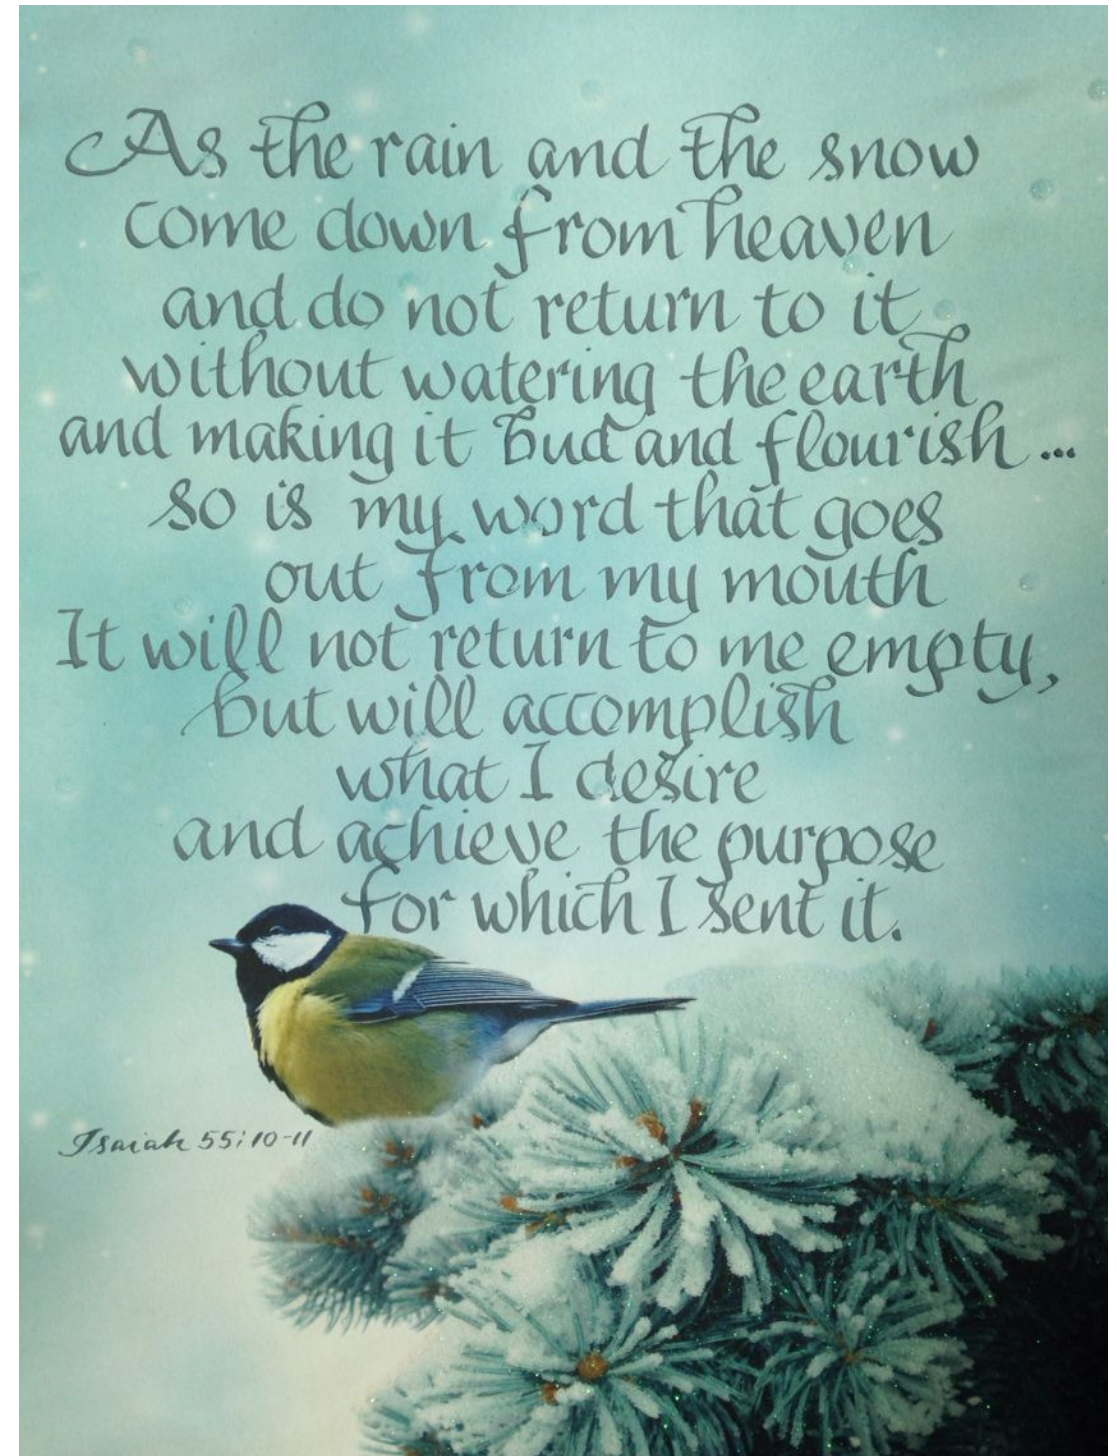 As the rain and the snow
come down from heaven
and do not return to it
without watering the earth
and making it bud and flourish ...
so is my word that goes
out from my mouth
It will not return to me empty,
but will accomplish
what I desire
and achieve the purpose
for which I sent it.
Isaiah 55:10-11